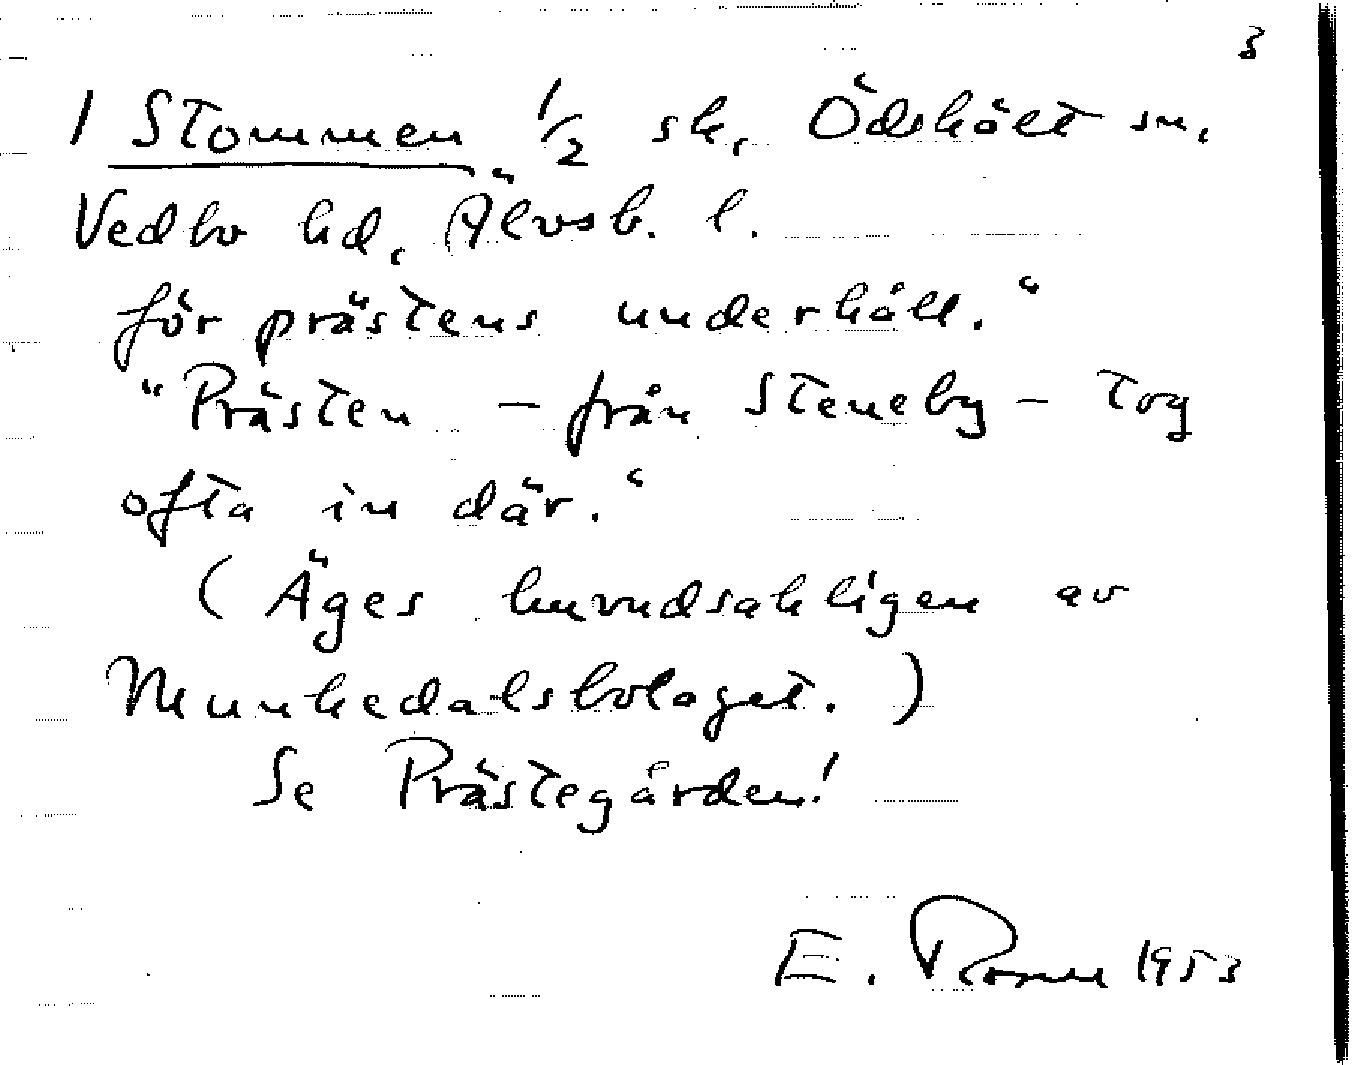 3
1 Stommen ½ sk, Ödskölt sn,
Vedbo hd, Älvsb. l.
för prästens underhåll."
"Prästen – från Steneby – tog
ofta in där."
(Äges huvudsakligen av
Munkedalsbolaget.)
Se Prästegården!
E. 1953